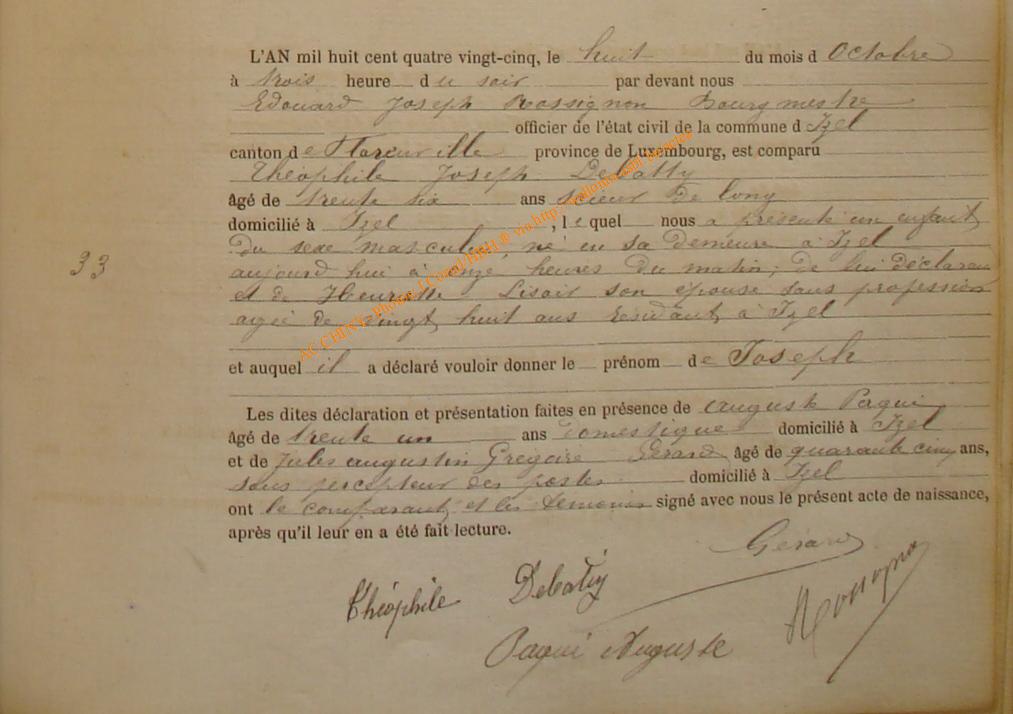 L'AN mil huit cent quatre vingt-cinq, le huit du mois d Octobre
à trois heure du soir par devant nous
Edouard Joseph Rossignon Bourgmestre
officier de l'état civil de la commune d Izel
canton de Florenville province de Luxembourg, est comparu
Théophile Joseph Debatty
âgé de trente six ans scieur de long
domicilié à Izel, lequel nous a présenté un enfant
du sexe masculin, né en sa demeure à Izel
aujourd'hui à onze heures du matin, de lui déclarant
33
et de Henriette Lisoir son épouse sans profession
agée de vingt huit ans résidant à Izel
et auquel il a déclaré vouloir donner le prénom de Joseph
Les dites déclaration et présentation faites en présence de auguste Paqui
âgé de trente un ans domestique domicilié à Izel
et de Jules augustin Grégoire Gérard âgé de quarante cinq ans,
sous percepteur des postes domicilié à Izel
ont le comparant et les témoins signé avec nous le présent acte de naissance,
après qu'il leur en a été fait lecture.
Gérard
Théophile Debatty
Rossignon
Paqui Auguste